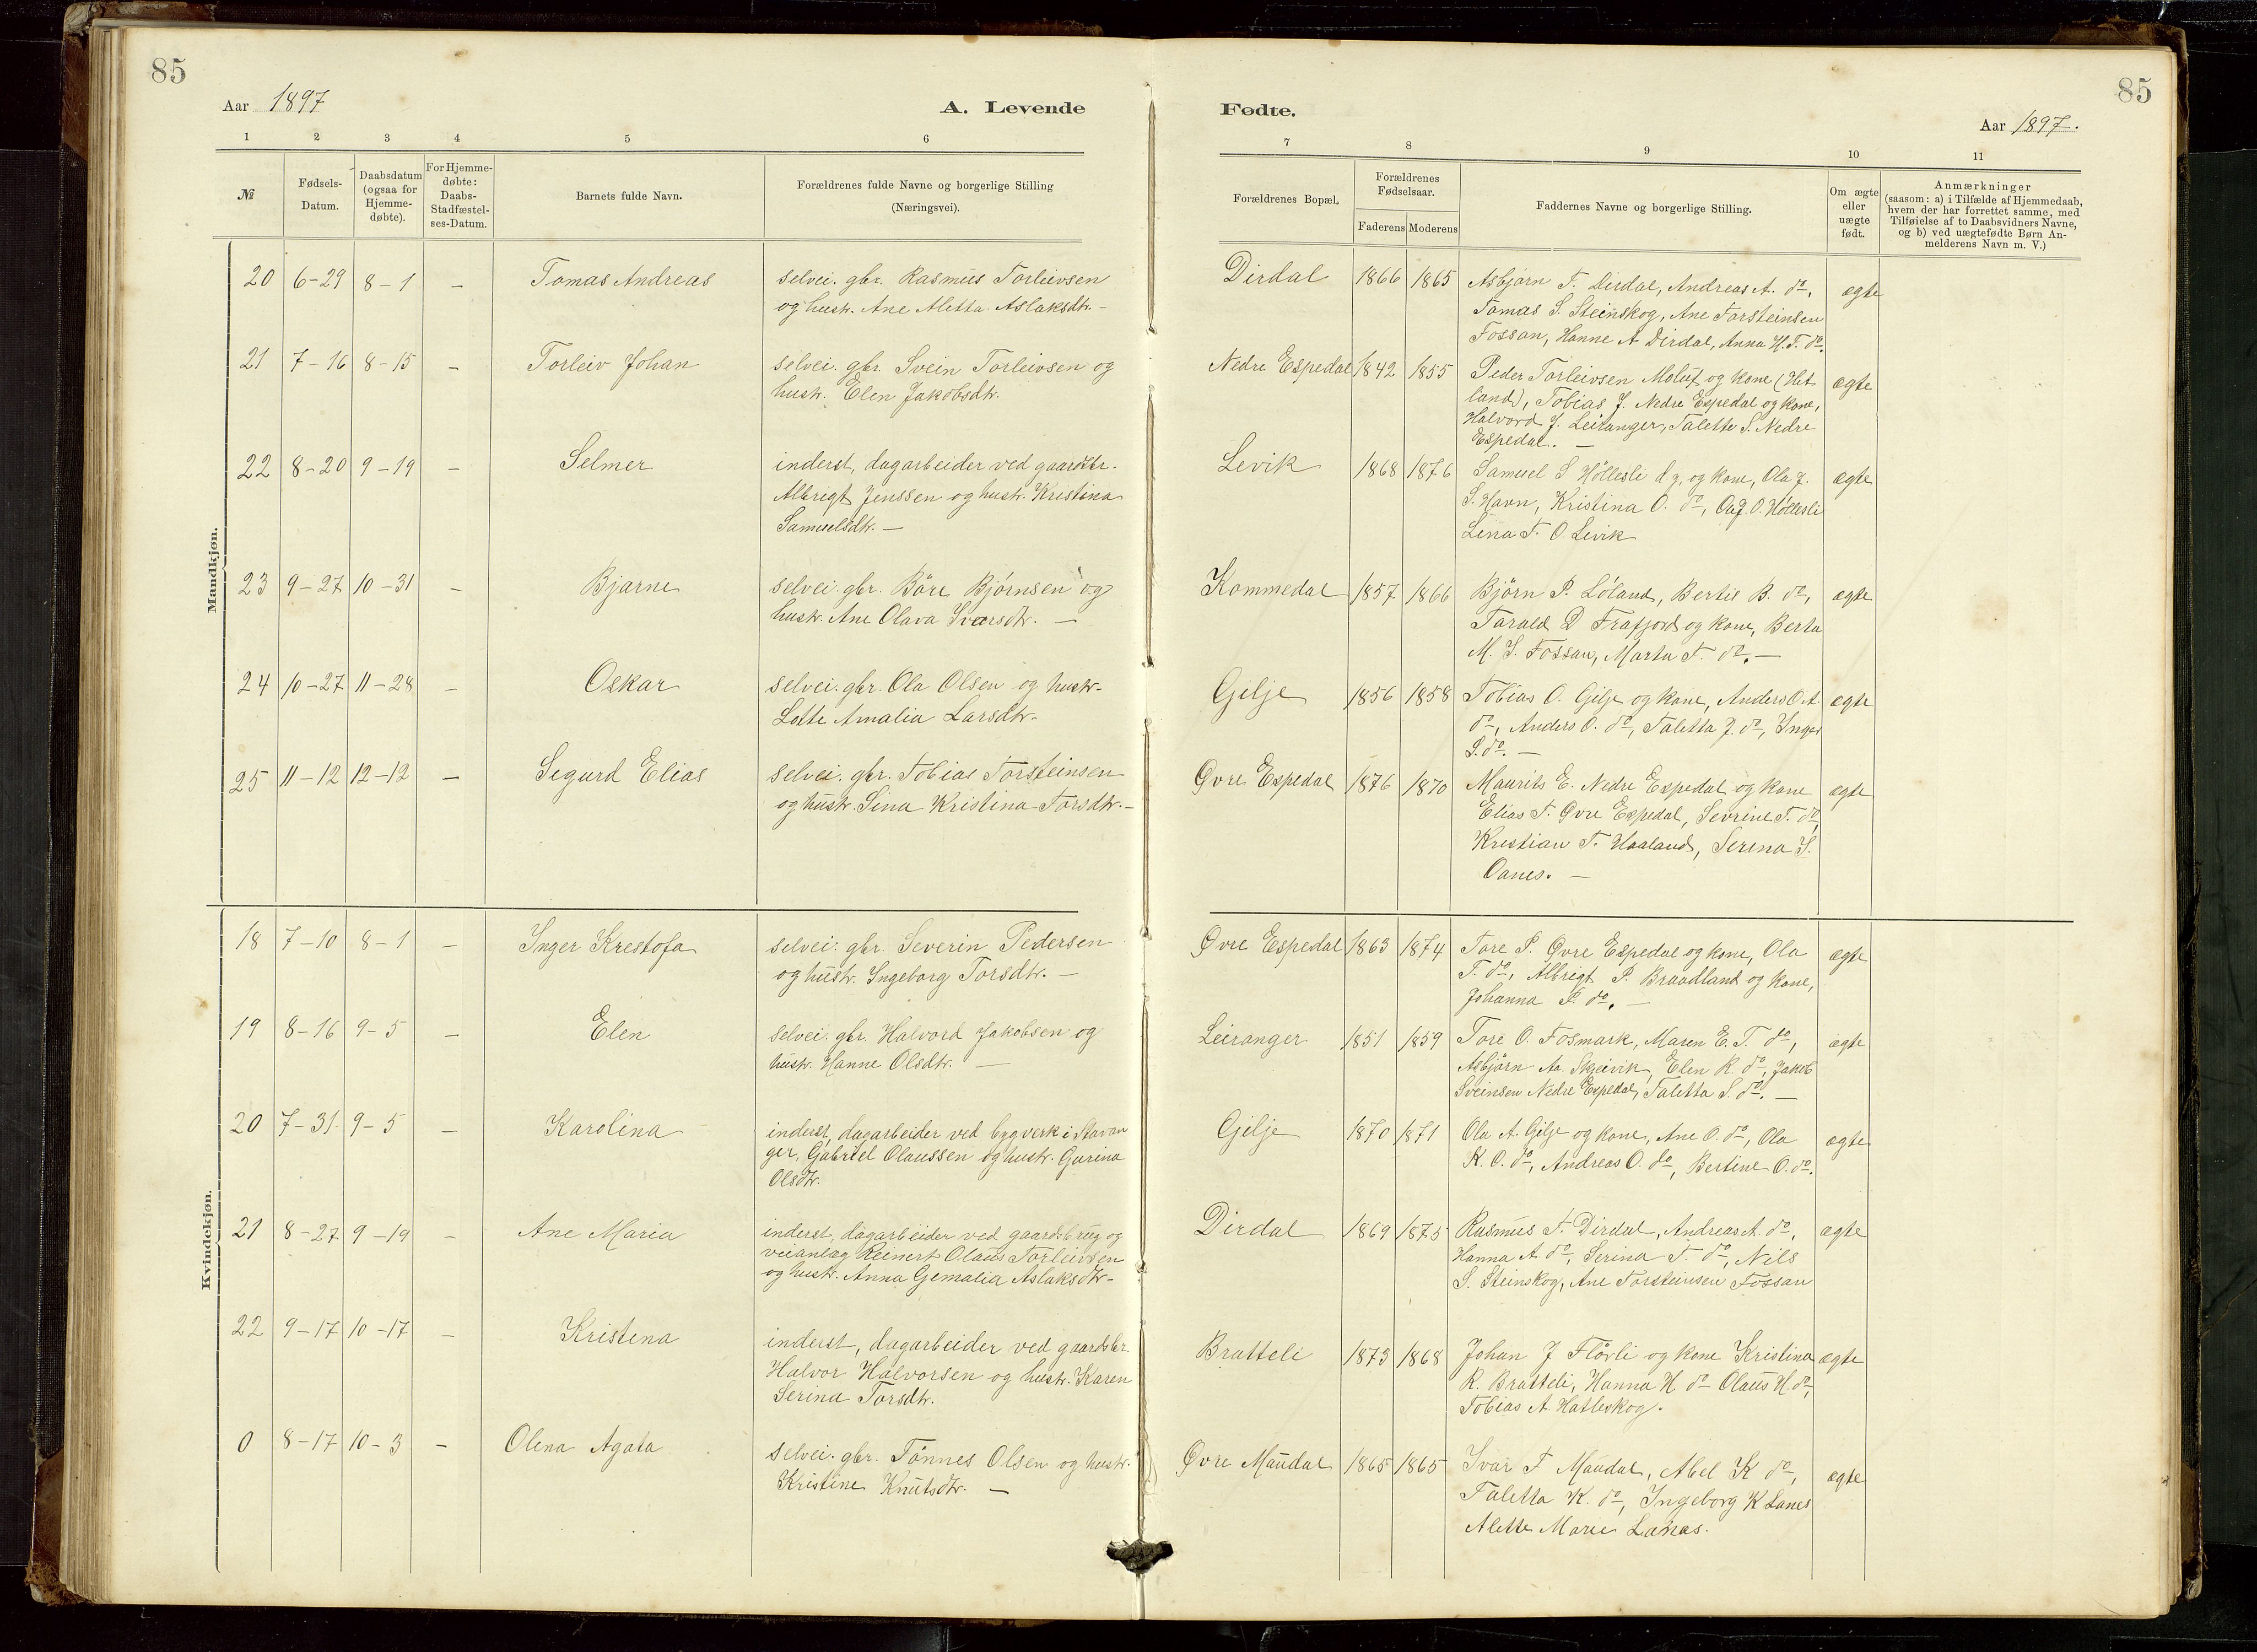 85
Aar 1897
A. Levende
1 2 3 4 5 6
№
Fødsels-
Datum.
Daabsdatum
(ogsaa for
Hjemme-
døbte).
For Hjemme-
døbte:
Daabs-
Stadfæstel-
ses-Datum.
Barnets fulde Navn.
Forældrenes fulde Navne og borgerlige Stilling
(Næringsvei).
Mandkjøn.
20 6-29 8-1 - Tomas Andreas selvei. gbr. Rasmus Torleivsen
og hustr. Ane Aletta Aslaksdtr. -
21 7-16 8-15 - Torleiv Johan selvei. gbr. Svein Torleivsen og
hustr. Elen Jakobsdtr.
22 8-20 9-19 - Selmer inderst, dagarbeider ved gaardsbr.
Albrigt Jenssen og hustr. Kristina
Samuelsdtr. -
23 9-27 10-31 - Bjarne selvei. gbr. Böre Bjørnsen og
hustr. Ane Olava Iversdtr. -
24 10-27 11-28 - Oskar selvei. gbr. Ola Olsen og hustr.
Lotte Amalia Larsdtr.
25 11-12 12-12 - Sigurd Elias selvei. gbr. Tobias Torsteinsen
og hustr. Sina Kristina Torsdtr. -
Kvindekjøn.
18 7-10 8-1 - Inger Krestofa selvei. gbr. Severin Pedersen
og hustr. Ingeborg Torsdtr. -
19 8-16 9-5 - Elen selvei. gbr. Halvord Jakobsen og
hustr. Hanne Olsdtr. -
20 7-31 9-5 - Karolina inderst, dagarbeider ved bygverk i Stavan
ger, Gabriel Olaussen og hustr. Gurina
Olsdtr.
21 8-27 9-19 - Ane Maria inderst, dagarbeider ved gaardsbrug og
veianlæg Reinert Olaus Torleivsen
og hustr. Anna Gemalia Aslaksdtr-
22 9-17 10-17 - Kristena inderst, dagarbeider ved gaardsbr.
Halvor Halvorsen og hustr. Karen
Serina Torsdtr.
0 8-17 10-3 - Olena Agata selvei. gbr. Tönnes Olsen og hustr.
Kristine Knutsdtr. -
85
Fødte.
Aar 1897.
7 8 9 10 11
Forældrenes Bopæl.
Forældrenes
Fødselsaar.
Faderens Moderens
Faddernes Navne og borgerlige Stilling.
Om ægte
eller
uægte
født.
Anmærkninger
(saasom: a) i Tilfælde af Hjemmedaab,
hvem der har forrettet samme, med
Tilføielse af to Daabsvidners Navne,
og b) ved uægtefødte Børn An-
melderens Navn m. V.)
Dirdal 1866 1865 Asbjørn T. Dirdal, Andreas A. do, ægte
Tomas S. Steinskog, Ane Torsteinsen
Fossan, Hanne A Dirdal, Anna H. T. do.
Nedre Espedal 1842 1855 Peder Torleivsen og kone (Het ægte
land), Tobias J. Nedre Espedal og kone,
Halvord J. Leiranger, Talette S. Nedre
Espedal. -
Levik 1868 1876 Samuel S Höllesli og kone, Ola J. ægte
S. Havn, Kristina O. do, O. Höllesli
Lina T. O. Levik
Kommedal 1857 1866 Bjørn P. Löland, Bertil B. do, ægte
Tarald D Frafjord og kone, Berta
M. S. Fossan, Marta T. do. -
Gilje 1856 1858 Tobias O. Gilje og kone, Anders O. A. ægte
do, Anders O. do, Taletta J. do, Inger
S. do. -
Øvre Espedal 1876 1870 Maurits E. Nedre Espedal og kone ægte
Elias T. Øvre Espedal, Sevrine T. do,
Kristian T. Haaland, Serena S.
Oanes. -
Øvre Espedal 1863 1874 Tore P. Øvre Espedal og kone, Ola ægte
T. do, Albrigt P. Braadland og kone,
Johanna P. do. -
Leiranger 1851 1859 Tore O. Fosmark, Maren E. T. do, ægte
Asbjörn Aa. Skjeivik, Elen R. do, Jakob
Sveinsen Nedre Espedal, Taletta S. do. -
Gilje 1870 1871 Ola A. Gilje og kone, Ane O. do, Ola ægte
K. O. do, Andreas O. do, Bertine O. do.
Dirdal 1869 1875 Rasmus T. Dirdal, Andreas A. do, ægte
Hanna A. do, Serina T. do, Nils
S. Steinskog, Ane Torsteinsen Fossan
Bratteli 1873 1868 Johan J Flörli og kone Kristina ægte
R. Bratteli, Hanna H. do Olaus H. do,
Tobias A. Hatleskog.
Øvre Maudal 1865 1865 Ivar T Maudal, Abel K do, ægte
Taletta K. do, Ingeborg K Lanes
Alette Marie Lanes.